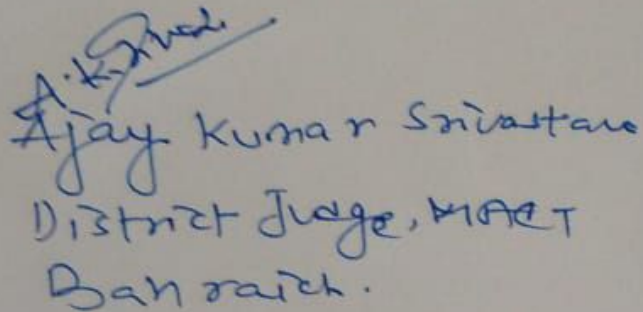 A.K. Srivas.
Ajay Kumar Srivastava
District Judge, MACT
Bahraich.